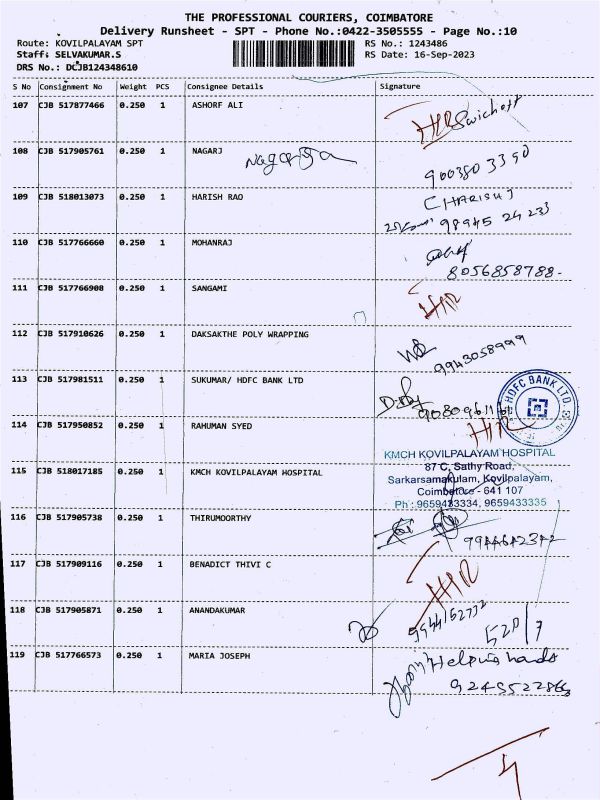 THE PROFESSIONAL COURIERS, COIMBATORE
Delivery Runsheet - SPT - Phone No.:0422-3505555 - Page No.:10
Route: KOVILPALAYAM SPT
RS No.: 1243486
Staff: SELVAKUMAR.S
RS Date: 16-Sep-2023
DRS No.: DCJB124348610
S No Consignment No Weight PCS Consignee Details Signature
107 CJB 517877466 0.250 1 ASHORF ALI
108 CJB 517905761 0.250 1 NAGARJ
9003803390
109 CJB 518013073 0.250 1 HARISH RAO
98945 24 233
110 CJB 517766660 0.250 1 MOHANRAJ
8056858788-
111 CJB 517766908 0.250 1 SANGAMI
112 CJB 517910626 0.250 1 DAKSAKTHE POLY WRAPPING
9943058999
113 CJB 517981511 0.250 1 SUKUMAR/ HDFC BANK LTD
HDFC BANK LTD.
114 CJB 517950852 0.250 1 RAHUMAN SYED
KMCH KOVILPALAYAM HOSPITAL
87 C, Sathy Road,
115 CJB 518017185 0.250 1 KMCH KOVILPALAYAM HOSPITAL
Sarkarsamakulam, Kovilpalayam,
Coimbatore - 641 107
Ph : 9659433334, 9659433335
116 CJB 517905738 0.250 1 THIRUMOORTHY
117 CJB 517909116 0.250 1 BENADICT THIVI C
118 CJB 517905871 0.250 1 ANANDAKUMAR
520/7
119 CJB 517766573 0.250 1 MARIA JOSEPH
Helping hands